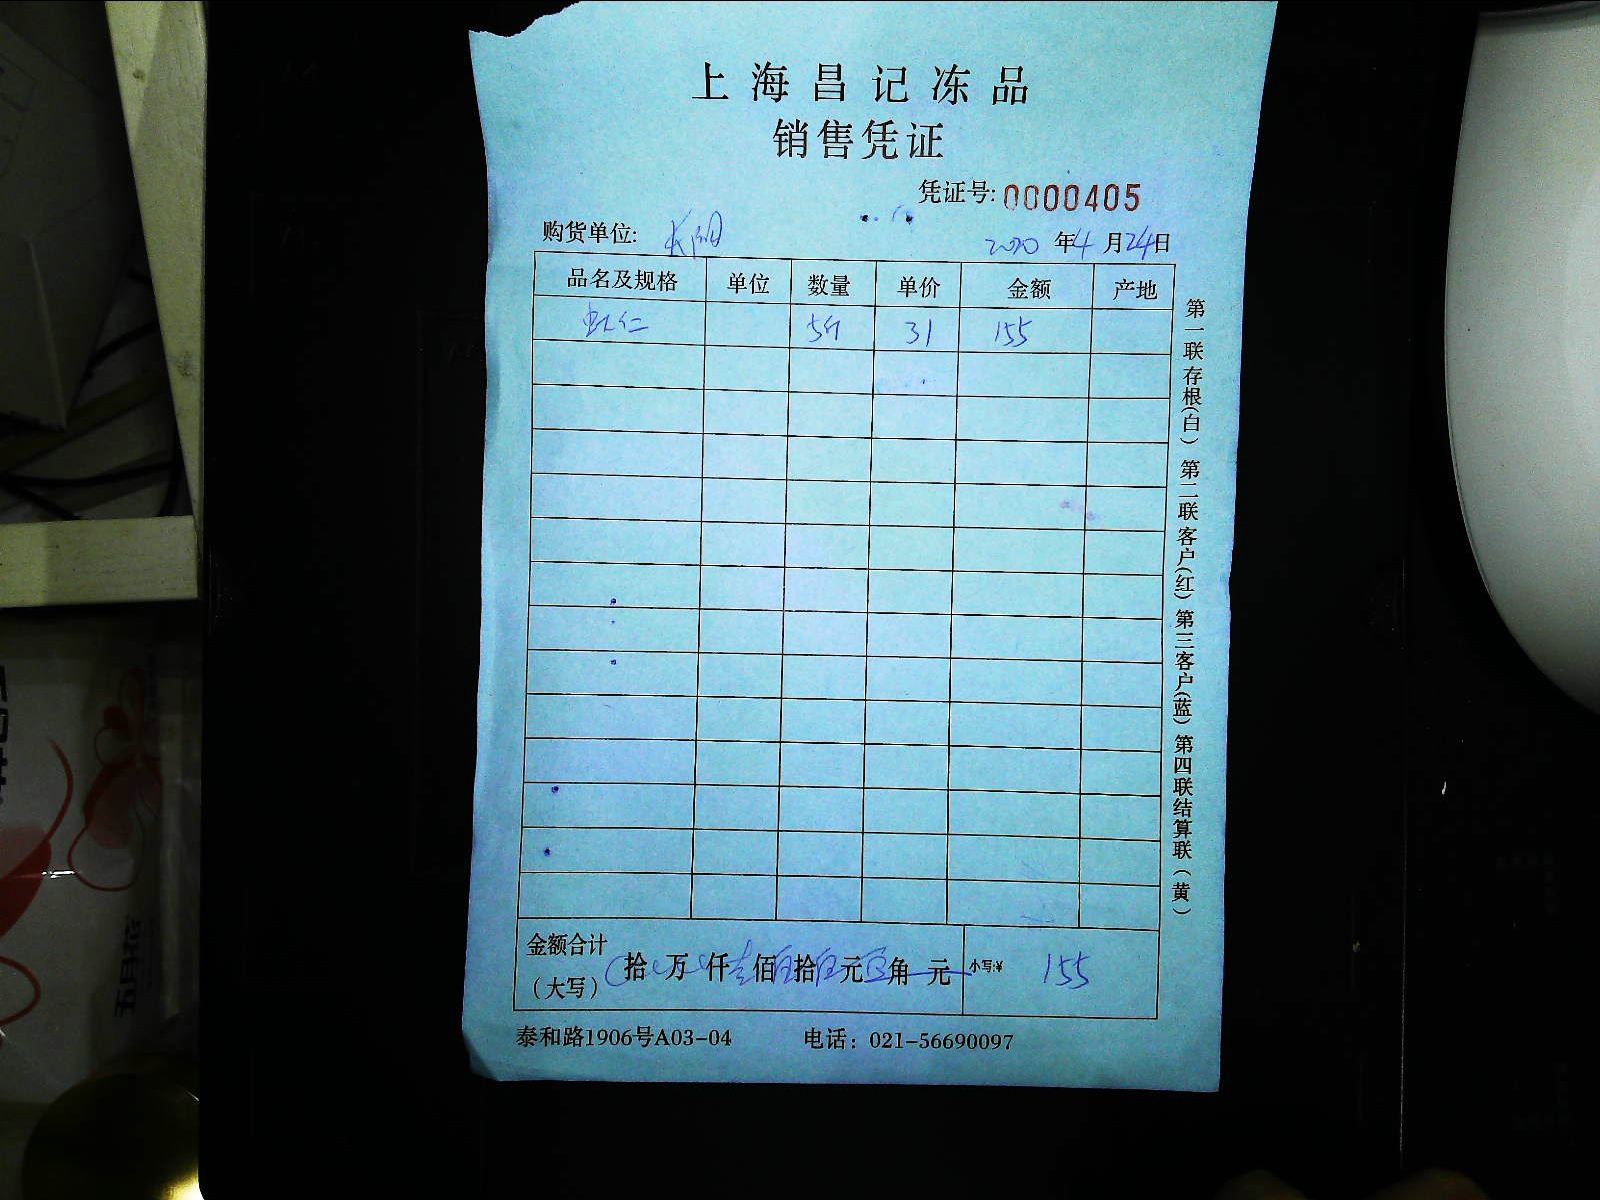 上海昌记冻品
销售凭证
凭证号: 0000405
购货单位: 长阳 2020 年 4 月 24 日
品名及规格 单位 数量 单价 金额 产地
虾仁 5斤 31 155
金额合计
(大写) 拾 万 仟 壹 佰 伍 拾 伍 元 角 元 小写:¥ 155
泰和路1906号A03-04 电话：021-56690097
第一联存根(白) 第二联客户(红) 第三客户(蓝) 第四联结算联(黄)